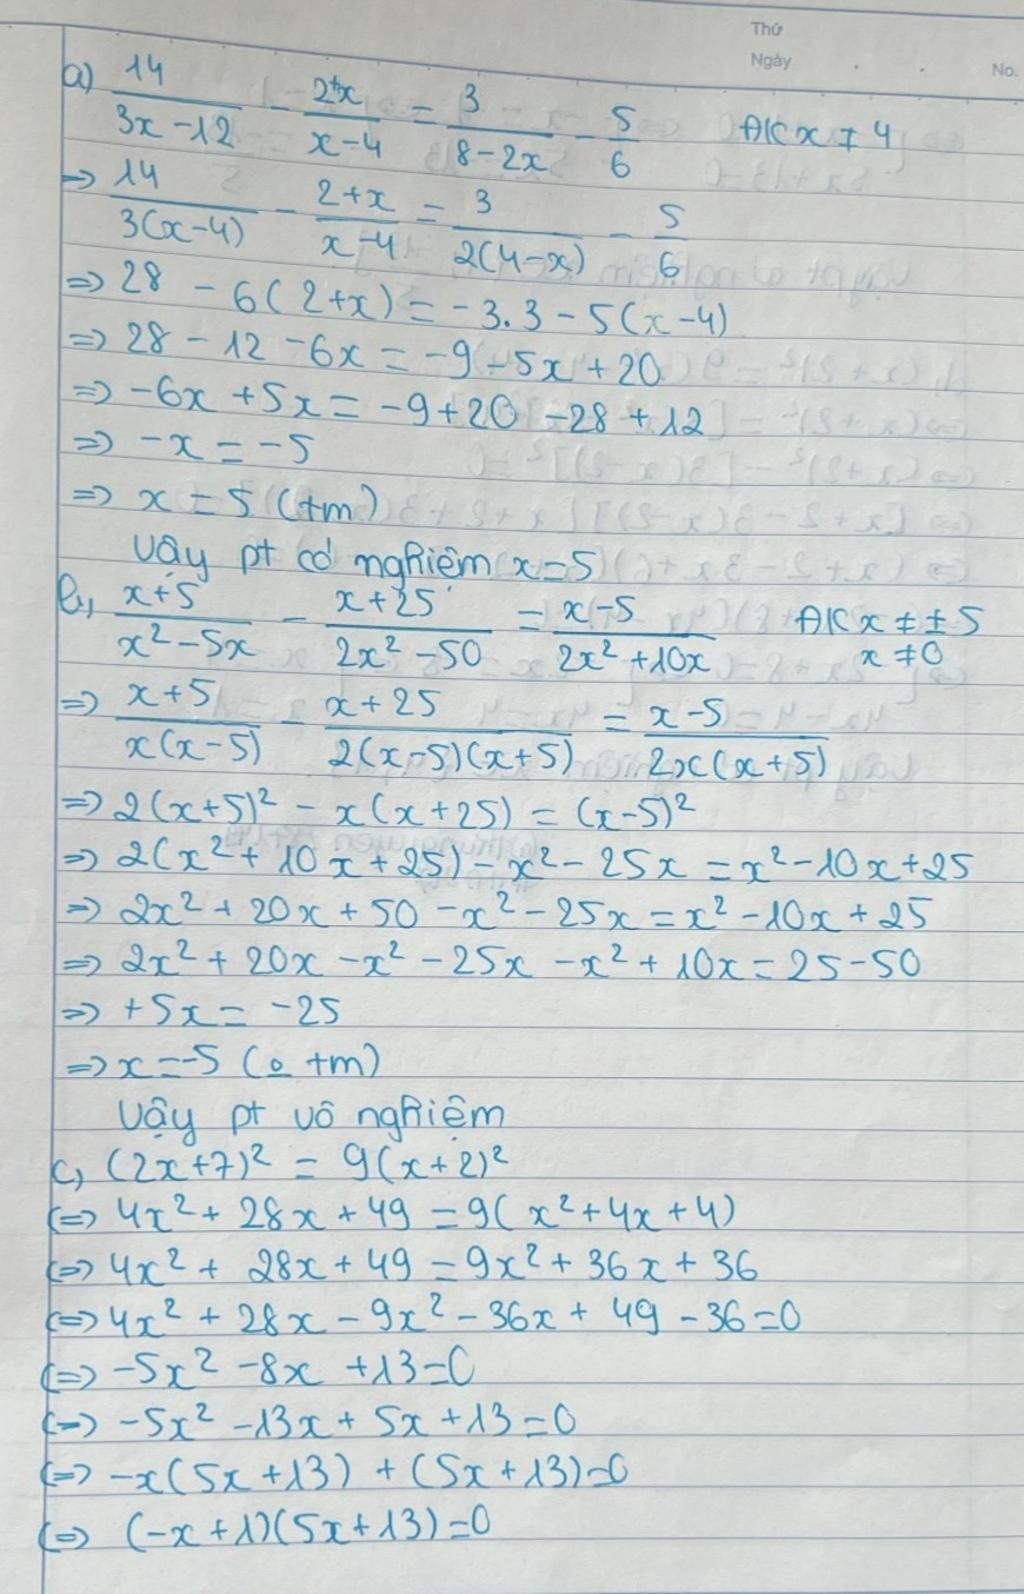 Thứ
Ngày . . No.
a) 14/(3x-12) - (2+x)/(x-4) = 3/(8-2x) - 5/6 ĐK x ≠ 4
=> 14/(3(x-4)) - (2+x)/(x-4) = 3/(2(4-x)) - 5/6
=> 28 - 6(2+x) = -3.3 - 5(x-4)
=> 28 - 12 - 6x = -9 - 5x + 20
=> -6x + 5x = -9 + 20 - 28 + 12
=> -x = -5
=> x = 5 (tm)
Vậy pt có nghiệm x=5
b, (x+5)/(x²-5x) - (x+25)/(2x²-50) = (x-5)/(2x²+10x) ĐK x ≠ ±5
x ≠ 0
=> (x+5)/(x(x-5)) - (x+25)/(2(x-5)(x+5)) = (x-5)/(2x(x+5))
=> 2(x+5)² - x(x+25) = (x-5)²
=> 2(x²+10x+25) - x² - 25x = x² - 10x + 25
=> 2x² + 20x + 50 - x² - 25x = x² - 10x + 25
=> 2x² + 20x - x² - 25x - x² + 10x = 25 - 50
=> +5x = -25
=> x = -5 (o tm)
Vậy pt vô nghiệm
c, (2x+7)² = 9(x+2)²
<=> 4x² + 28x + 49 = 9(x²+4x+4)
<=> 4x² + 28x + 49 = 9x² + 36x + 36
<=> 4x² + 28x - 9x² - 36x + 49 - 36 = 0
<=> -5x² - 8x + 13 = 0
<=> -5x² - 13x + 5x + 13 = 0
<=> -x(5x+13) + (5x+13) = 0
<=> (-x+1)(5x+13) = 0